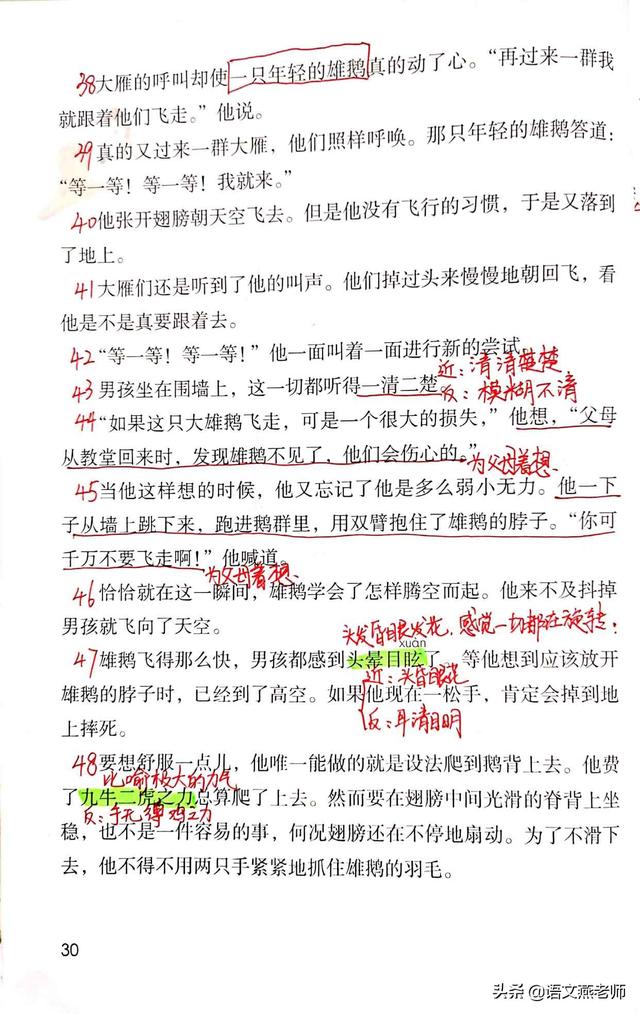 38大雁的呼叫却使一只年轻的雄鹅真的动了心。“再过来一群我
就跟着他们飞走。”他说。
39真的又过来一群大雁，他们照样呼唤。那只年轻的雄鹅答道：
“等一等！等一等！我就来。”
40他张开翅膀朝天空飞去。但是他没有飞行的习惯，于是又落到
了地上。
41大雁们还是听到了他的叫声。他们掉过头来慢慢地朝回飞，看
他是不是真要跟着去。
42“等一等！等一等！”他一面叫着一面进行新的尝试
近：清清楚楚
43男孩坐在围墙上，这一切都听得一清二楚。
反：模糊不清
44“如果这只大雄鹅飞走，可是一个很大的损失，”他想，“父母
从教堂回来时，发现雄鹅不见了，他们会伤心的。”
为父母着想
45当他这样想的时候，他又忘记了他是多么弱小无力。他一下
子从墙上跳下来，跑进鹅群里，用双臂抱住了雄鹅的脖子。“你可
千万不要飞走啊！”他喊道。
为父母着想
46恰恰就在这一瞬间，雄鹅学会了怎样腾空而起。他来不及抖掉
男孩就飞向了天空。
头发昏眼发花，感觉一切都在旋转
xuàn
47雄鹅飞得那么快，男孩都感到头晕目眩了 等他想到应该放开
近：头昏眼花
雄鹅的脖子时，已经到了高空。如果他现在一松手，肯定会掉到地
反：耳清目明
上摔死。
48要想舒服一点儿，他唯一能做的就是设法爬到鹅背上去。他费
比喻极大的力气
了九牛二虎之力总算爬了上去。然而要在翅膀中间光滑的脊背上坐
反：手无缚鸡之力
稳，也不是一件容易的事，何况翅膀还在不停地扇动。为了不滑下
去，他不得不用两只手紧紧地抓住雄鹅的羽毛。
30
头条 @语文燕老师